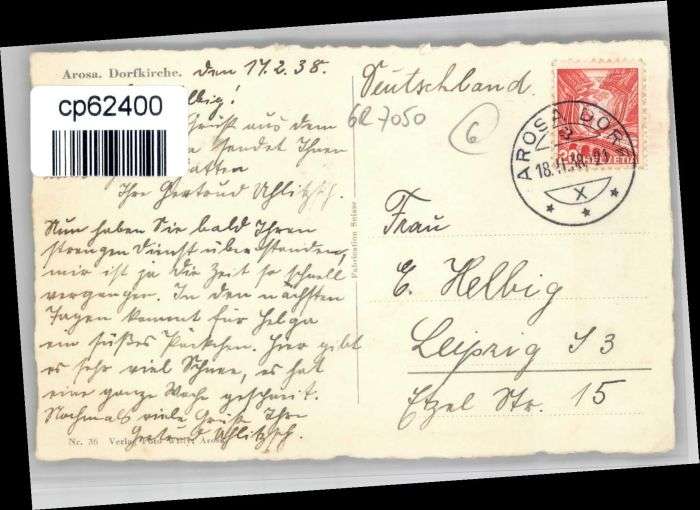 Arosa. Dorfkirche.
den 17.2.38.
cp62400
lbig!
Gruß aus dem
sendet Ihnen
Ihre Gertrud Uhlitzsch.
Nun haben Sie bald Ihren
strengen Dienst überstanden,
mir ist ja die Zeit so schnell
vergangen. In den nächsten
Tagen kommt für Helga
ein süßes Päckchen. Hier gibt
es sehr viel Schnee, es hat
eine ganze Woche geschneit.
Nochmals viele Grüße Ihre
Gertrud Uhlitzsch.
Nr. 36 Verlag
Fabrication Suisse
Deutschland.
6R7050
6
AROSA DORF
HELVETIA
X
Frau
E. Helbig
Leipzig S 3
Etzel Str. 15